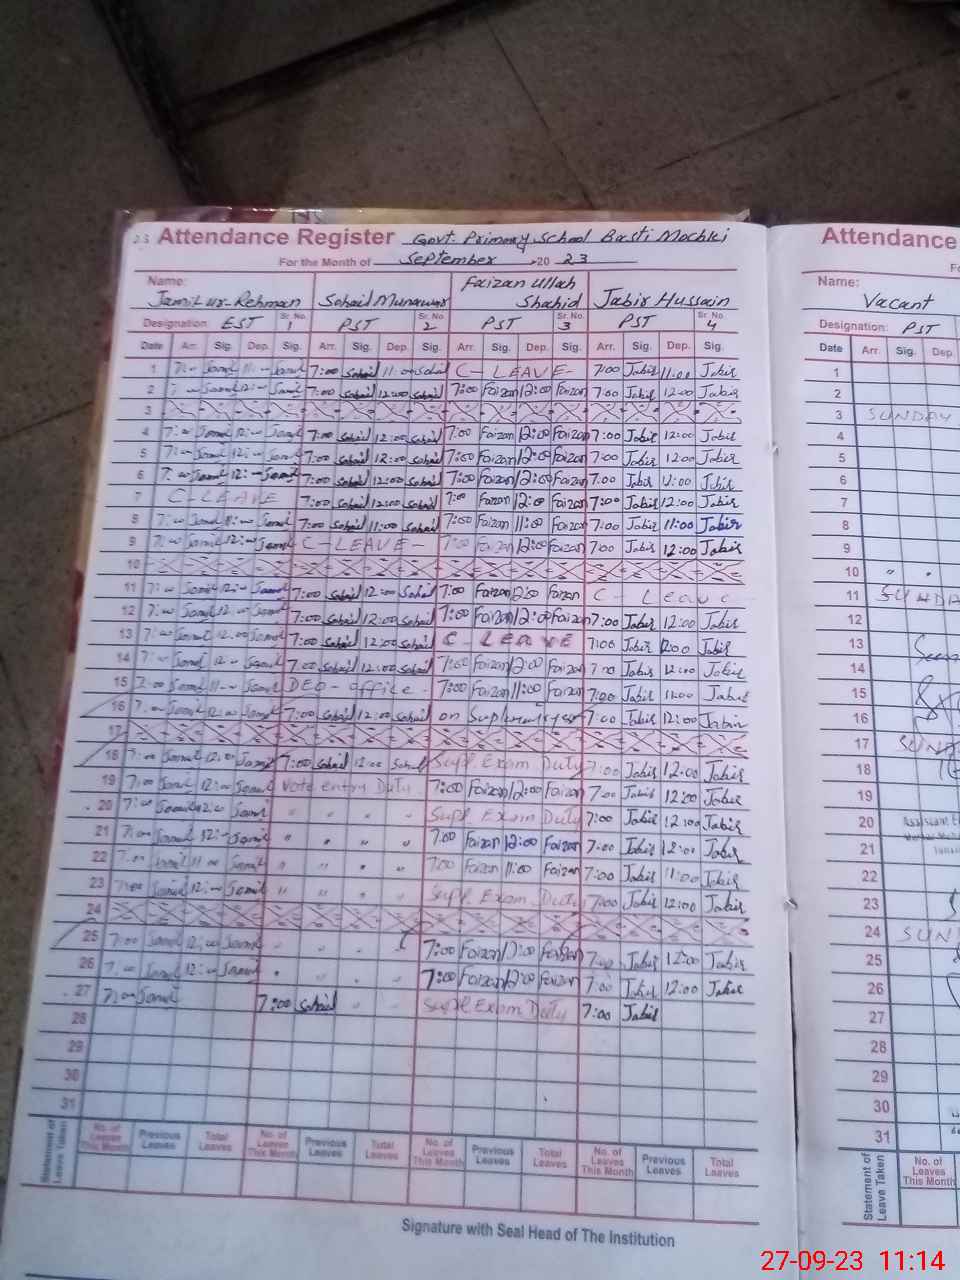 23 Attendance Register Govt. Primary School Basti Mochki
For the Month of September 20 23
Name: Jamil ur-Rehman Sohail Munawar Faizan Ullah Shahid Jabir Hussain
Designation: EST Sr. No. 1 PST Sr. No. 2 PST Sr. No. 3 PST Sr. No. 4
Date Arr. Sig. Dep. Sig. Arr. Sig. Dep. Sig. Arr. Sig. Dep. Sig. Arr. Sig. Dep. Sig.
1 7:00 Jamil 11:00 Jamil 7:00 Sohail 11:00 Sohail C-LEAVE- 7:00 Jabir 11:00 Jabir
2 7:00 Jamil 12:00 Jamil 7:00 Sohail 12:00 Sohail 7:00 Faizan 12:00 Faizan 7:00 Jabir 12:00 Jabir
3
4 7:00 Jamil 12:00 Jamil 7:00 Sohail 12:00 Sohail 7:00 Faizan 12:00 Faizan 7:00 Jabir 12:00 Jabir
5 7:00 Jamil 12:00 Jamil 7:00 Sohail 12:00 Sohail 7:00 Faizan 12:00 Faizan 7:00 Jabir 12:00 Jabir
6 7:00 Jamil 12:00 Jamil 7:00 Sohail 12:00 Sohail 7:00 Faizan 12:00 Faizan 7:00 Jabir 12:00 Jabir
7 C-LEAVE 7:00 Sohail 12:00 Sohail 7:00 Faizan 12:00 Faizan 7:00 Jabir 12:00 Jabir
8 7:00 Jamil 11:00 Jamil 7:00 Sohail 11:00 Sohail 7:00 Faizan 11:00 Faizan 7:00 Jabir 11:00 Jabir
9 7:00 Jamil 12:00 Jamil C-LEAVE- 7:00 Faizan 12:00 Faizan 7:00 Jabir 12:00 Jabir
10
11 7:00 Jamil 12:00 Jamil 7:00 Sohail 12:00 Sohail 7:00 Faizan 12:00 Faizan C- Leave
12 7:00 Jamil 12:00 Jamil 7:00 Sohail 12:00 Sohail 7:00 Faizan 12:00 Faizan 7:00 Jabir 12:00 Jabir
13 7:00 Jamil 12:00 Jamil 7:00 Sohail 12:00 Sohail C-LEAVE 7:00 Jabir 12:00 Jabir
14 7:00 Jamil 12:00 Jamil 7:00 Sohail 12:00 Sohail 7:00 Faizan 12:00 Faizan 7:00 Jabir 12:00 Jabir
15 7:00 Jamil 11:00 Jamil DEO-office- 7:00 Faizan 11:00 Faizan 7:00 Jabir 11:00 Jabir
16 7:00 Jamil 12:00 Jamil 7:00 Sohail 12:00 Sohail on 7:00 Jabir 12:00 Jabir
17
18 7:00 Jamil 12:00 Jamil 7:00 Sohail 12:00 Sohail Supl. Exam Duty 7:00 Jabir 12:00 Jabir
19 7:00 Jamil 12:00 Jamil Vote entry Duty 7:00 Faizan 12:00 Faizan 7:00 Jabir 12:00 Jabir
20 7:00 Jamil 12:00 Jamil " " " " Supl. Exam Duty 7:00 Jabir 12:00 Jabir
21 7:00 Jamil 12:00 Jamil " " " " 7:00 Faizan 12:00 Faizan 7:00 Jabir 12:00 Jabir
22 7:00 Jamil 11:00 Jamil " " " " 7:00 Faizan 11:00 Faizan 7:00 Jabir 11:00 Jabir
23 7:00 Jamil 12:00 Jamil " " " " Supl. Exam Duty 7:00 Jabir 12:00 Jabir
24
25 7:00 Jamil 12:00 Jamil " " " 7:00 Faizan 12:00 Faizan 7:00 Jabir 12:00 Jabir
26 7:00 Jamil 12:00 Jamil " " " " 7:00 Faizan 12:00 Faizan 7:00 Jabir 12:00 Jabir
27 7:00 Jamil 7:00 Sohail " " Supl Exam Duty 7:00 Jabir
28
29
30
31
Statement of Leave Taken
No. of Leaves This Month Previous Leaves Total Leaves No. of Leaves This Month Previous Leaves Total Leaves No. of Leaves This Month Previous Leaves Total Leaves No. of Leaves This Month Previous Leaves Total Leaves
Signature with Seal Head of The Institution
Attendance
Name:
Vacant
Designation: PST
Date Arr. Sig. Dep.
1
2
3 SUNDAY
4
5
6
7
8
9
10 " "
11 SUNDA
12
13
14
15
16
17 SUN
18
19
20
21
22
23
24 SUN
25
26
27
28
29
30
31
Statement of Leave Taken
No. of Leaves This Month
27-09-23 11:14